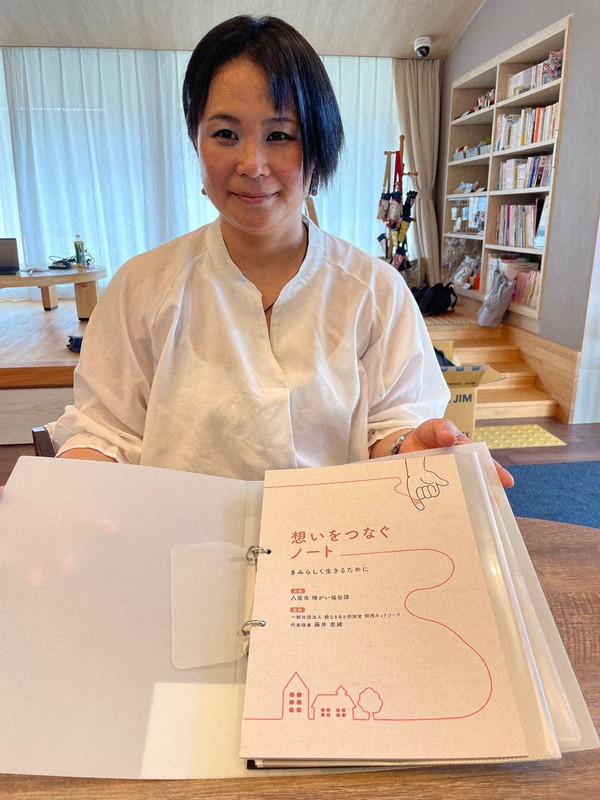 想いをつなぐ
ノート
きみらしく生きるために
八尾市 障がい福祉課
一般社団法人 親なきあと相談室 関西ネットワーク
代表理事 藤井 奈緒
JIM